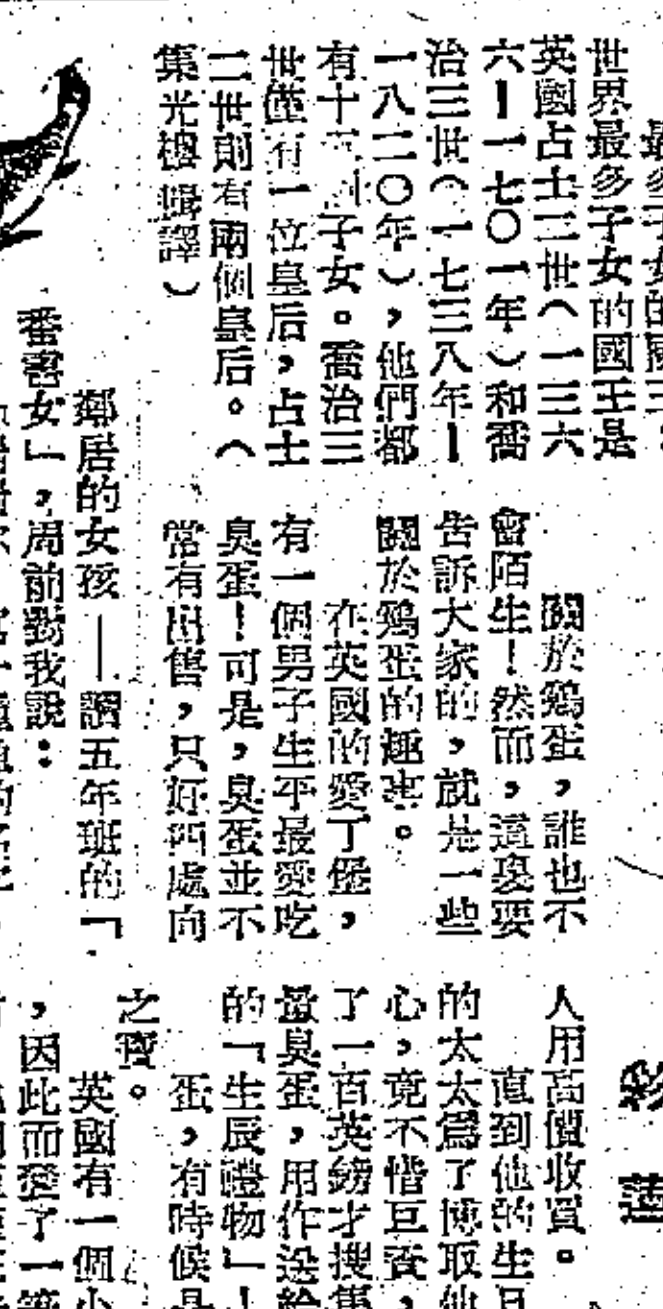 世界最多子女的國王是
英國占士二世(一三六
六—一七〇一年)和喬
治三世(一七三八年—
一八二〇年),他們都
有十五個子女。喬治三
世僅有一位皇后,占士
二世則有兩個皇后。(
集光樓輯譯)
關於鷄蛋,誰也不
會陌生!然而,這裏要
告訴大家的,就是一些
關於鷄蛋的趣事。
在英國的愛丁堡,
有一個男子生平最愛吃
臭蛋!可是,臭蛋並不
常有出售,只好四處向
人用高價收買。
直到他的生日
的太太爲了博取他
心,竟不惜巨資,
了一百英鎊才搜集
量臭蛋,用作送給
的「生辰禮物」!
蛋,有時候是
之寶。
英國有一個小
,因此而發了一筆
鄰居的女孩——讀五年班的「
番書女」,周前對我說: